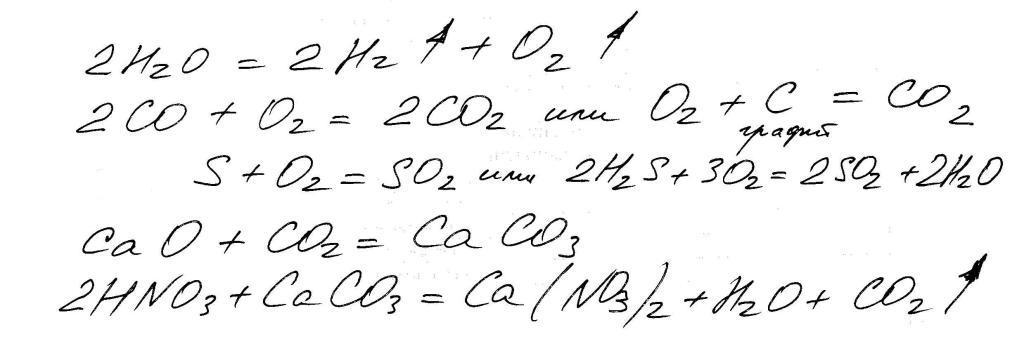 2H₂O = 2H₂↑ + O₂↑
2CO + O₂ = 2CO₂ или O₂ + C = CO₂
графит
S + O₂ = SO₂ или 2H₂S + 3O₂ = 2SO₂ + 2H₂O
CaO + CO₂ = CaCO₃
2HNO₃ + CaCO₃ = Ca(NO₃)₂ + H₂O + CO₂↑